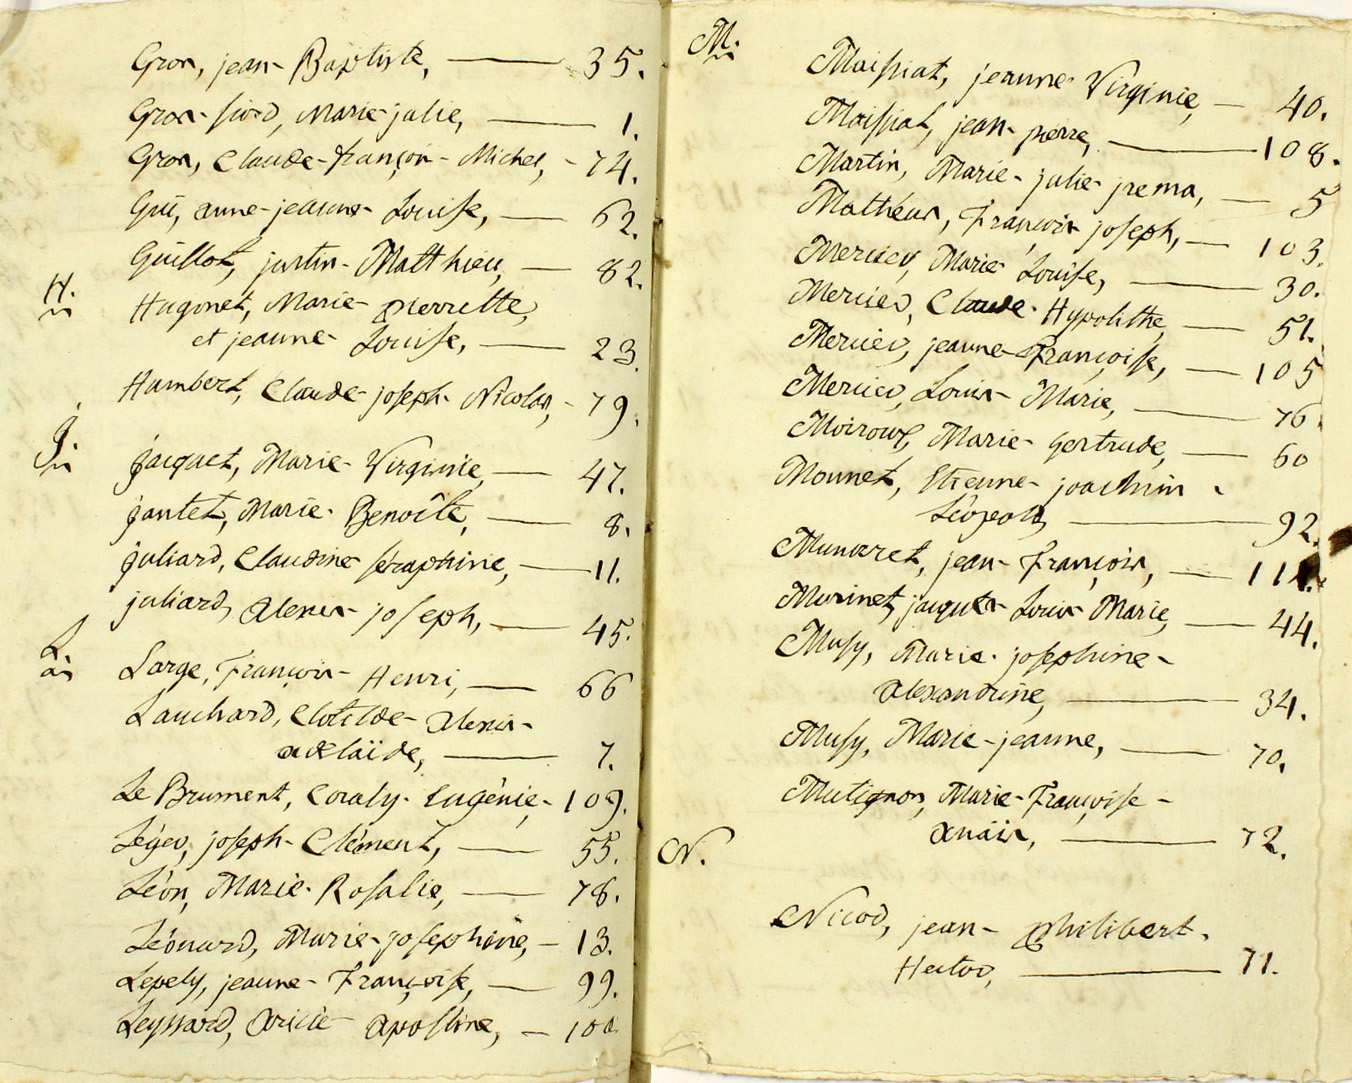 Gros, jean-Baptiste, — 35.
Gros-fiord, Marie-julie, — 1.
Gros, Claude-françois-Michel, - 74.
Gui, anne-jeanne-Louise, — 62.
Guillot, justin-Matthieu, — 82.
H.
Hugonet, Marie-pierrette,
et jeanne-Louise, — 23.
Humbert, Claude-joseph-Nicolas, - 79.
J.
jacquet, Marie-Virginie, — 47.
jantet, Marie-Benoîte, — 8.
juliard, Claudine séraphine, — 11.
juliard, alexis-joseph, — 45.
L.
Large, François-Henri, — 66
Lauchard, Clotilde-alexis-
adelaïde, — 7.
Le Brument, Coraly-Eugénie, - 109.
Léger, joseph-Clément, — 55.
Léon, Marie-Rosalie, — 78.
Léonard, Marie-josephine, — 13.
Lepely, jeanne-Françoise, — 99.
Leyssard, aricie apolline, — 100
M.
Maissiat, jeanne-Virginie, — 40.
Maissiat, jean-pierre, — 108.
Martin, Marie-julie-jrema, — 5
Mathéus, François joseph, — 103.
Mercier, Marie Louise, — 30.
Mercier, Claude-Hypolithe, — 51.
Mercier, jeanne-Françoise, — 105
Mercier, Louis-Marie, — 76.
Moiroux, Marie-gertrude, — 60
Monnet, Etienne-joachim-
Léopold, — 92.
Munaret, jean-François, — 111.
Murinet, jacques-Louis Marie, — 44.
Musy, Marie-josephine-
alexandrine, — 34.
Musy, Marie-jeanne, — 70.
Mutignon, Marie-Françoise-
anaïs, — 72.
N.
Nicod, jean-Philibert-
Hector, — 71.